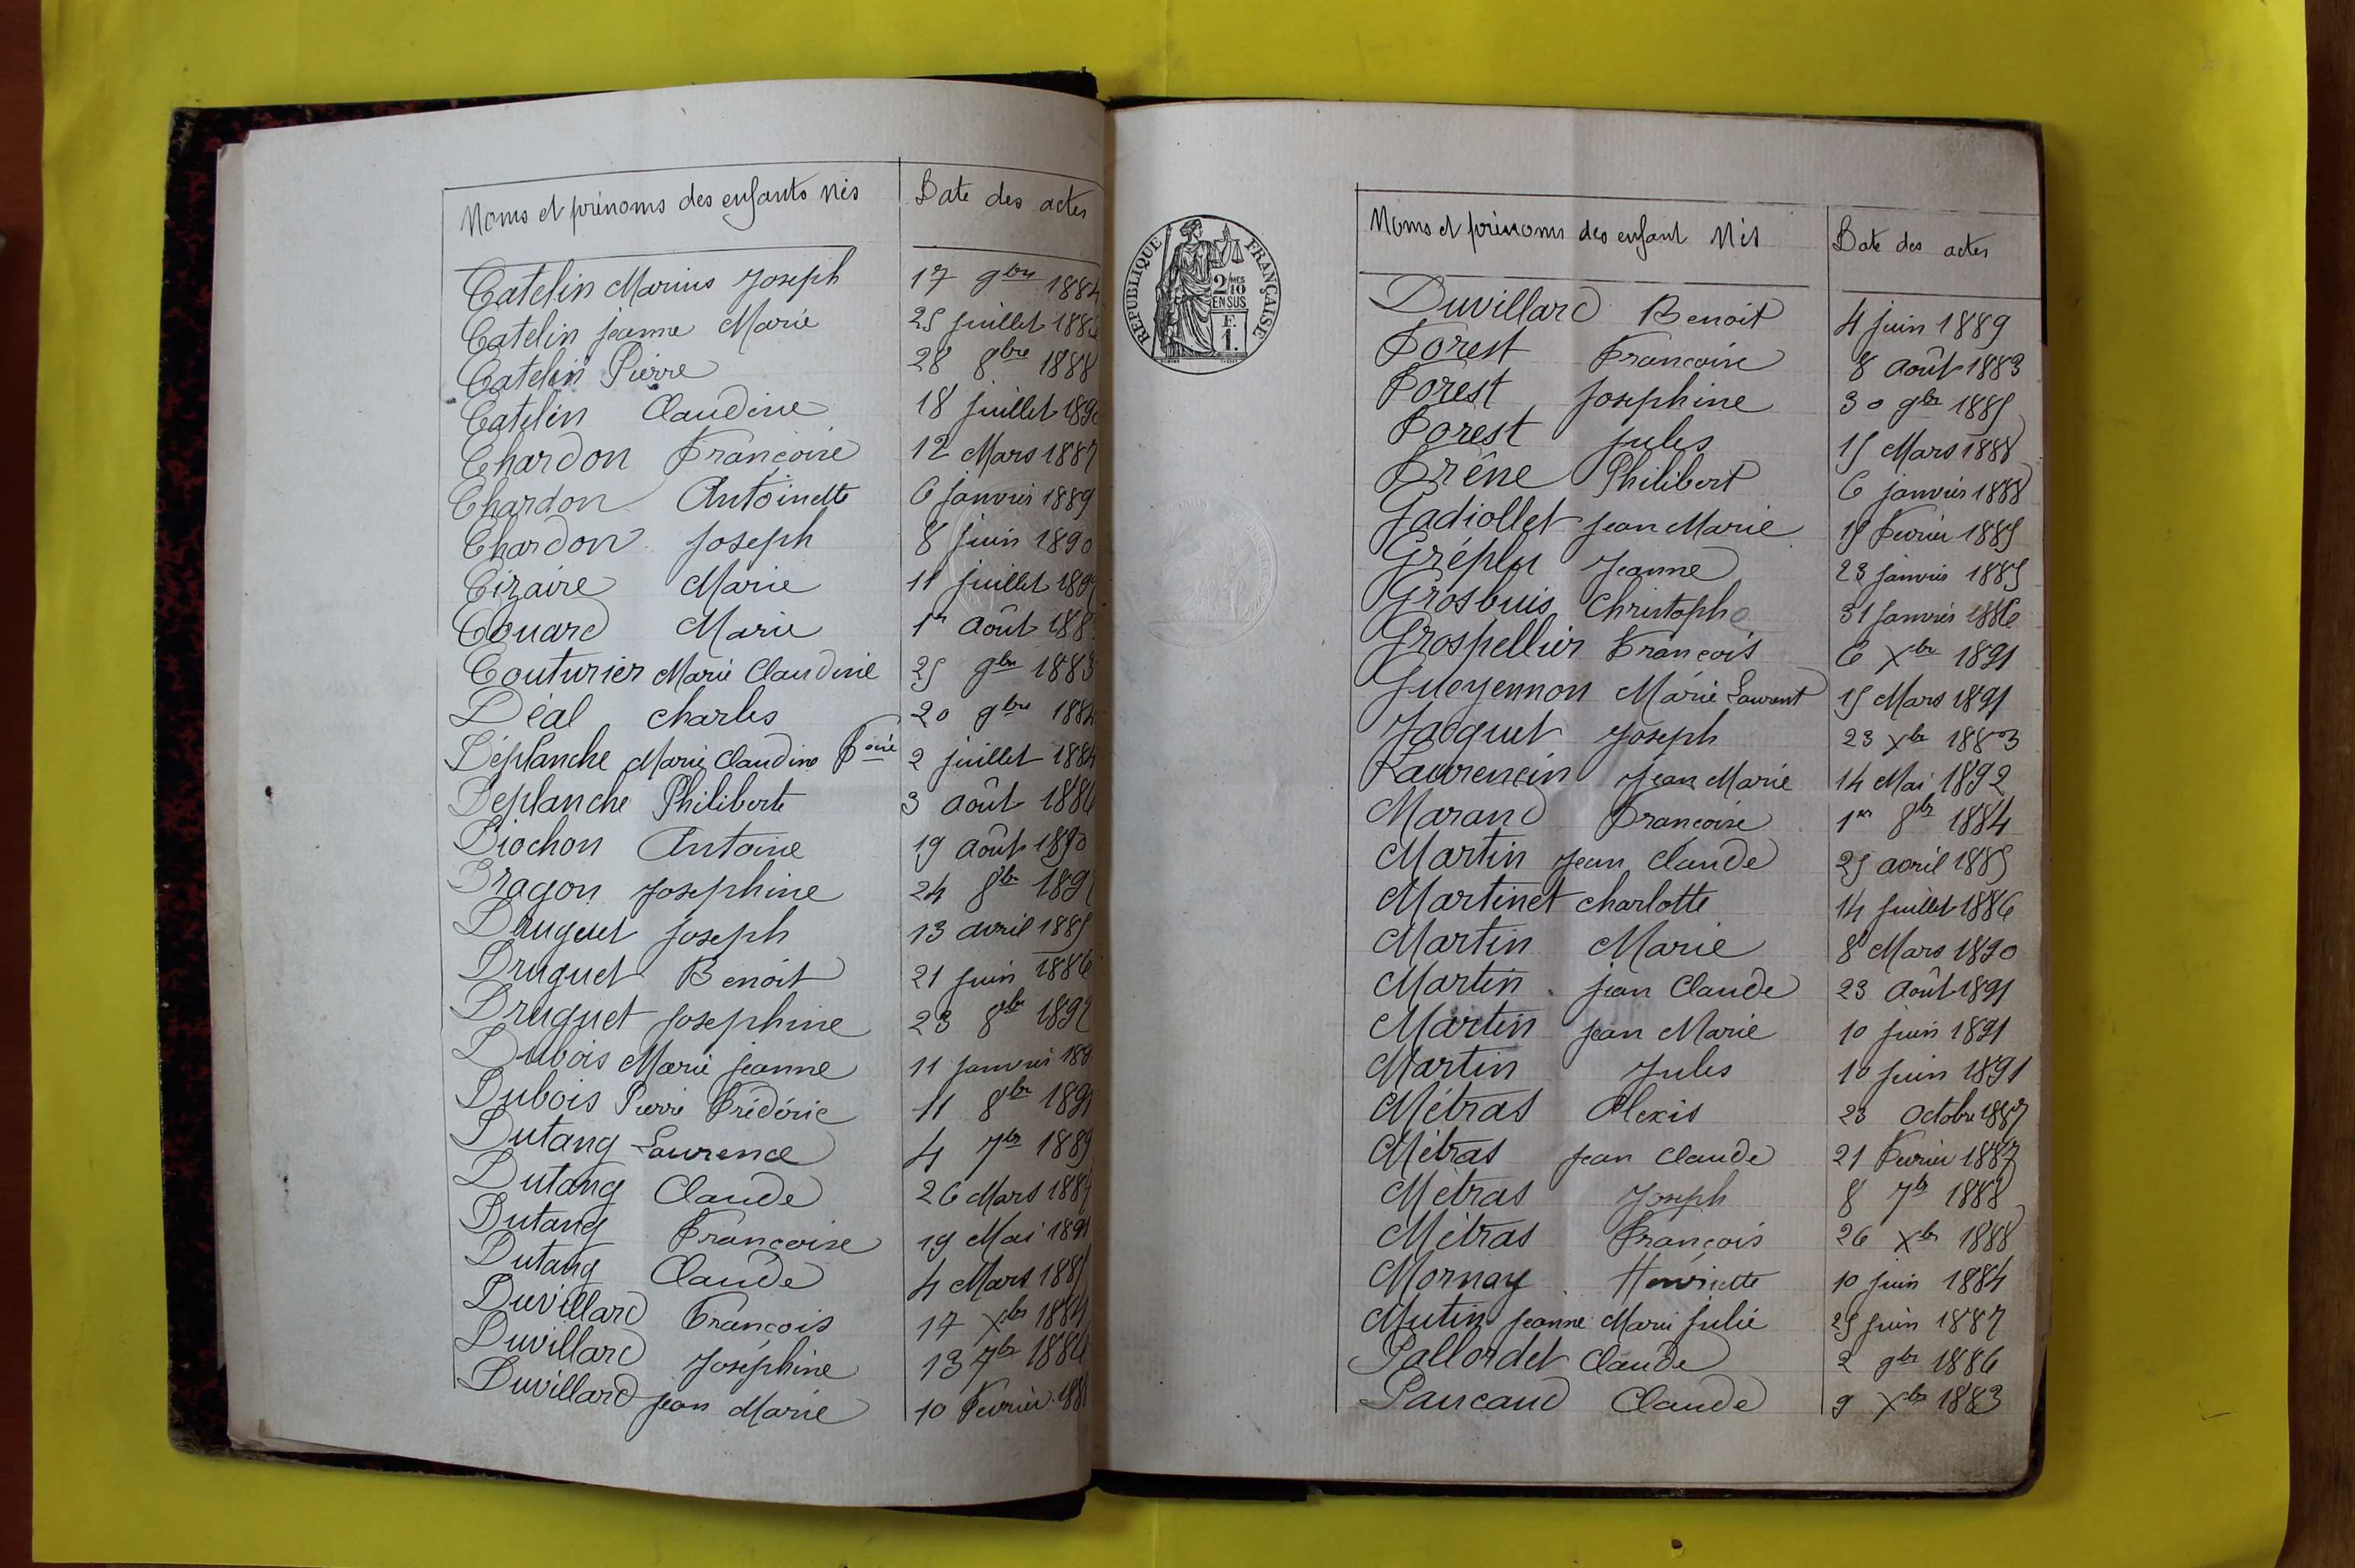 Noms et prénoms des enfants nés Date des actes
Catelin Marius Joseph 17 9bre 1884
Catelin jeanne Marie 25 juillet
Catelin Pierre 28 8bre 1888
Catelin Claudine 18 juillet 1890
Chardon Françoise 12 Mars 1887
Chardon Antoinette 6 janvier 1889
Chardon Joseph 8 juin 1890
Cizaire Marie 11 juillet
Couard Marie 1er Août
Couturier Marie Claudine 25 9bre 1883
Déal Charles 20 9bre 1884
Déplanche Marie Claudine Foise 2 juillet 1884
Déplanche Philiberte 3 Août 1886
Diochon Antoine 19 Août 1890
Dragon Josephine 24 8bre
Druguet Joseph 13 avril 1885
Druguet Benoit 21 juin 1886
Druguet Josephine 23 8bre 1892
Dubois Marie jeanne 11 janvier
Dubois Pierre Frédéric 11 8bre 1891
Dutang Laurence 4 7bre 1889
Dutang Claude 26 Mars 1887
Dutang Françoise 19 Mai 1891
Dutang Claude 4 Mars 1885
Duvillard François 17 Xbre 1884
Duvillard Joséphine 13 7bre 1886
Duvillard jean Marie 10 Fevrier
REPUBLIQUE FRANÇAISE
2/10MES
EN SUS
F.
1.
Noms et prénoms des enfant Nés Date des actes
Duvillard Benoit 4 juin 1889
Forest Françoise 8 Août 1883
Forest Josephine 30 9bre 1885
Forest Jules 15 Mars 1888
Frêne Philibert 6 janvier 1888
Gadiollet jean Marie 15 Fevrier 1885
Gréplu Jeanne 23 janvier 1885
Grosbuis Christophe 31 janvier 1886
Grospellier François 6 Xbre 1891
Gueyennon Marie Laurent 15 Mars 1891
Jacquet Joseph 23 Xbre 1883
Laurencin Jean Marie 14 Mai 1892
Marand Françoise 1er 8bre 1884
Martin Jean Claude 25 avril 1885
Martinet Charlotte 14 juillet 1886
Martin Marie 8 Mars 1890
Martin jean Claude 23 Août 1891
Martin jean Marie 10 juin 1891
Martin Jules 10 juin 1891
Métras Alexis 23 Octobre 1887
Métras jean Claude 21 Fevrier 1887
Métras Joseph 8 7bre 1888
Métras François 26 Xbre 1888
Mornay Henriette 10 juin 1884
Mutin Jeanne Marie julie 25 juin 1887
Pallordet Claude 2 9bre 1886
Paucaud Claude 9 Xbre 1883